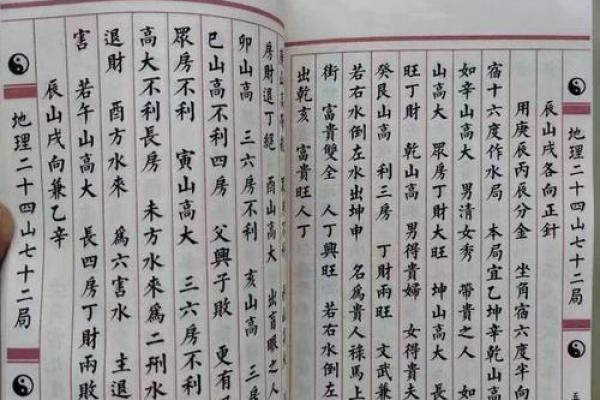 地理二十四山七十二局
辰山戌各向正針
用庚辰丙辰分金 坐角宿六度半向
宿十六度作水局 本局宜乙辛乾山高
如辛山高大 男清女秀 帶貴之人 如
山高大 眾房丁財大旺 坤山高大
旺丁財 乾山高 男得貴婦 女得貴夫
癸艮山高 利三房 丁財兩旺 文武兼
若右水倒左水出坤申 名爲貴人祿馬上
街 富貴雙全 人丁興旺 若右水倒
出乾亥 富貴旺人丁
房財退丁絕 酉山高大 出盲眼之人
卯山高 三六房不利 亥山高 三
巳山高不利四房 父興子敗 更有
眾房不利 寅山高大 三六房不利
高大不利長房 未方水來爲二刑水
退財 酉方水來 爲六害水 主退
害 若午山高大 長四房丁財兩敗
辰山戌向兼乙辛
地理二十四山七十二局